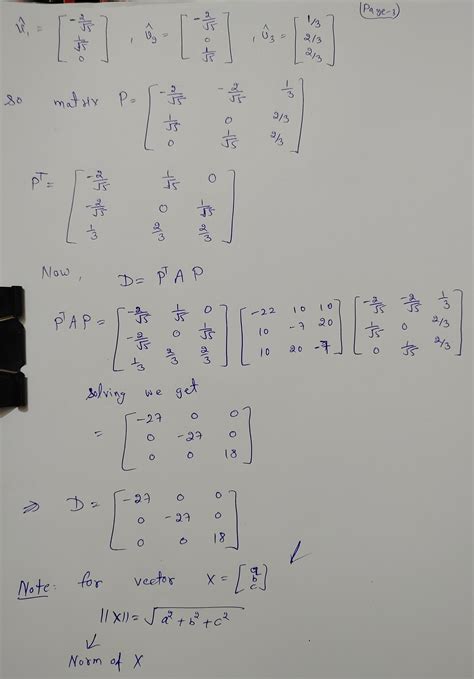 (Page-3)
v̂₁ = [-2/√5; 1/√5; 0], v̂₂ = [-2/√5; 0; 1/√5], v̂₃ = [1/3; 2/3; 2/3]
so matrix P = [-2/√5 -2/√5 1/3; 1/√5 0 2/3; 0 1/√5 2/3]
Pᵀ = [-2/√5 1/√5 0; -2/√5 0 1/√5; 1/3 2/3 2/3]
Now, D = PᵀAP
PᵀAP = [-2/√5 1/√5 0; -2/√5 0 1/√5; 1/3 2/3 2/3] [-22 10 10; 10 -7 20; 10 20 -7] [-2/√5 -2/√5 1/3; 1/√5 0 2/3; 0 1/√5 2/3]
solving we get
= [-27 0 0; 0 -27 0; 0 0 18]
⇒ D = [-27 0 0; 0 -27 0; 0 0 18]
Note: for vector X = [a; b; c]
||X|| = √a²+b²+c²
Norm of X